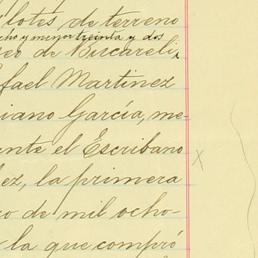 lotes de terreno
cho y menor treinta y dos
ser de Bucareli,
fael Martinez
iano García, me-
ente el Escribano
ez, la primera
o de mil ocho-
la que compró